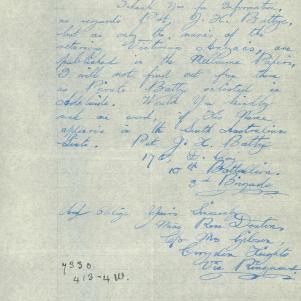 Thank you for Information
as regards Pte. J. H. Battye,
but as only the names of the
returning Victorian Anzacs, are
published in the Melbourne Papers,
I will not find out from them
as Private Battye enlisted in
Adelaide. Would you kindly
send me word, if His Name
appears in the South Australian
Lists. Pte. J. H. Battye
17th, D. Coy
10th Battallion.
3rd Brigade
Yours Sincerely
Miss Rose Deaton
C/o Mrs Gibson
Croydon Heights
Via Ringwood
7330
4/3-4 W.